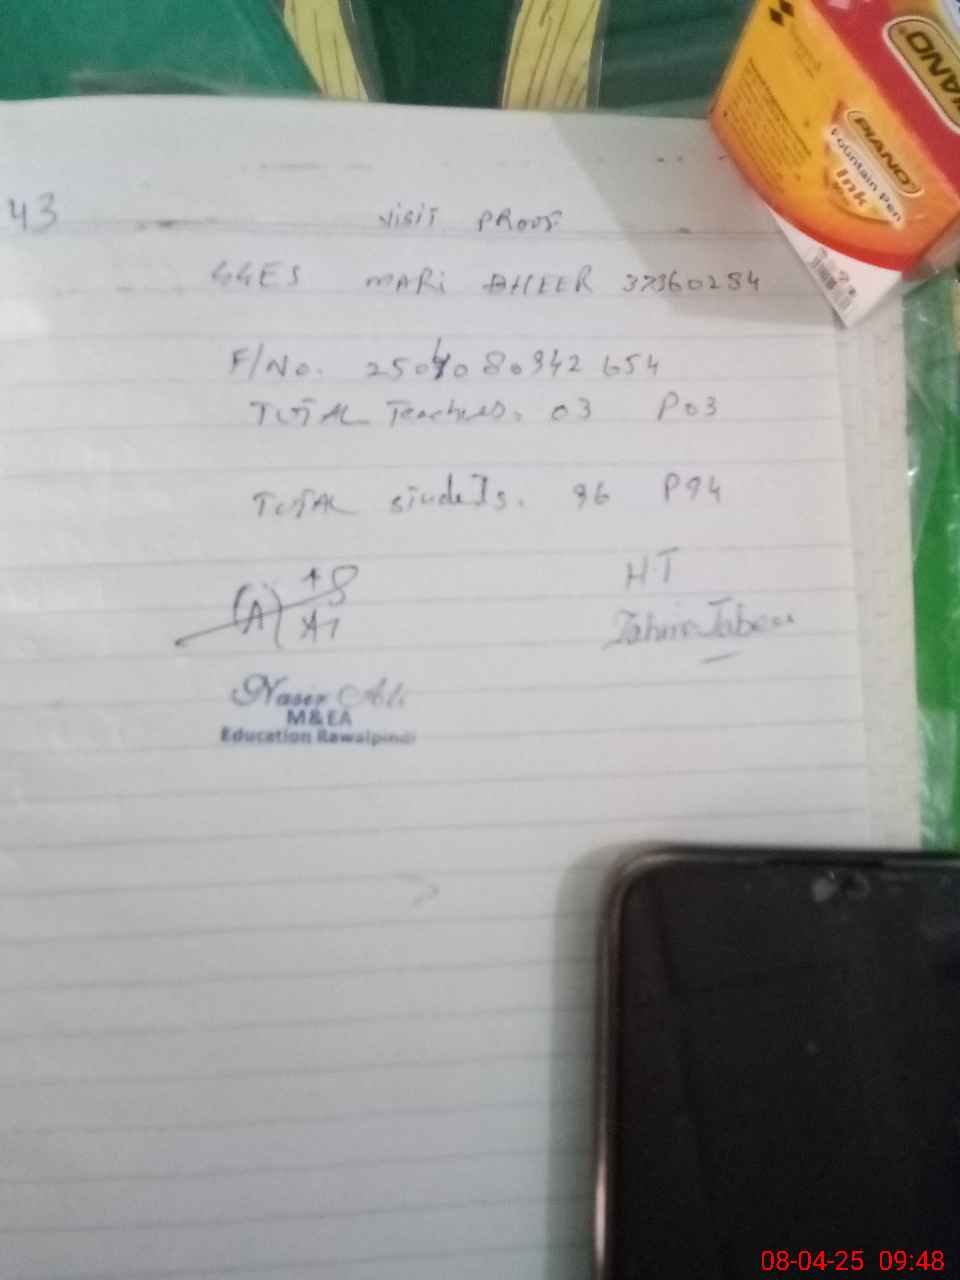 43
Visit Proof
GGES MARi BHEER 37360254
F/No. 25040 80942 654
TOTAL Teachers. 03 P03
TOTAL students. 96 P94
H.T
Nasir Ali
M&EA
Education Rawalpindi
PIANO
PIANO
Fountain Pen
Ink
08-04-25 09:48